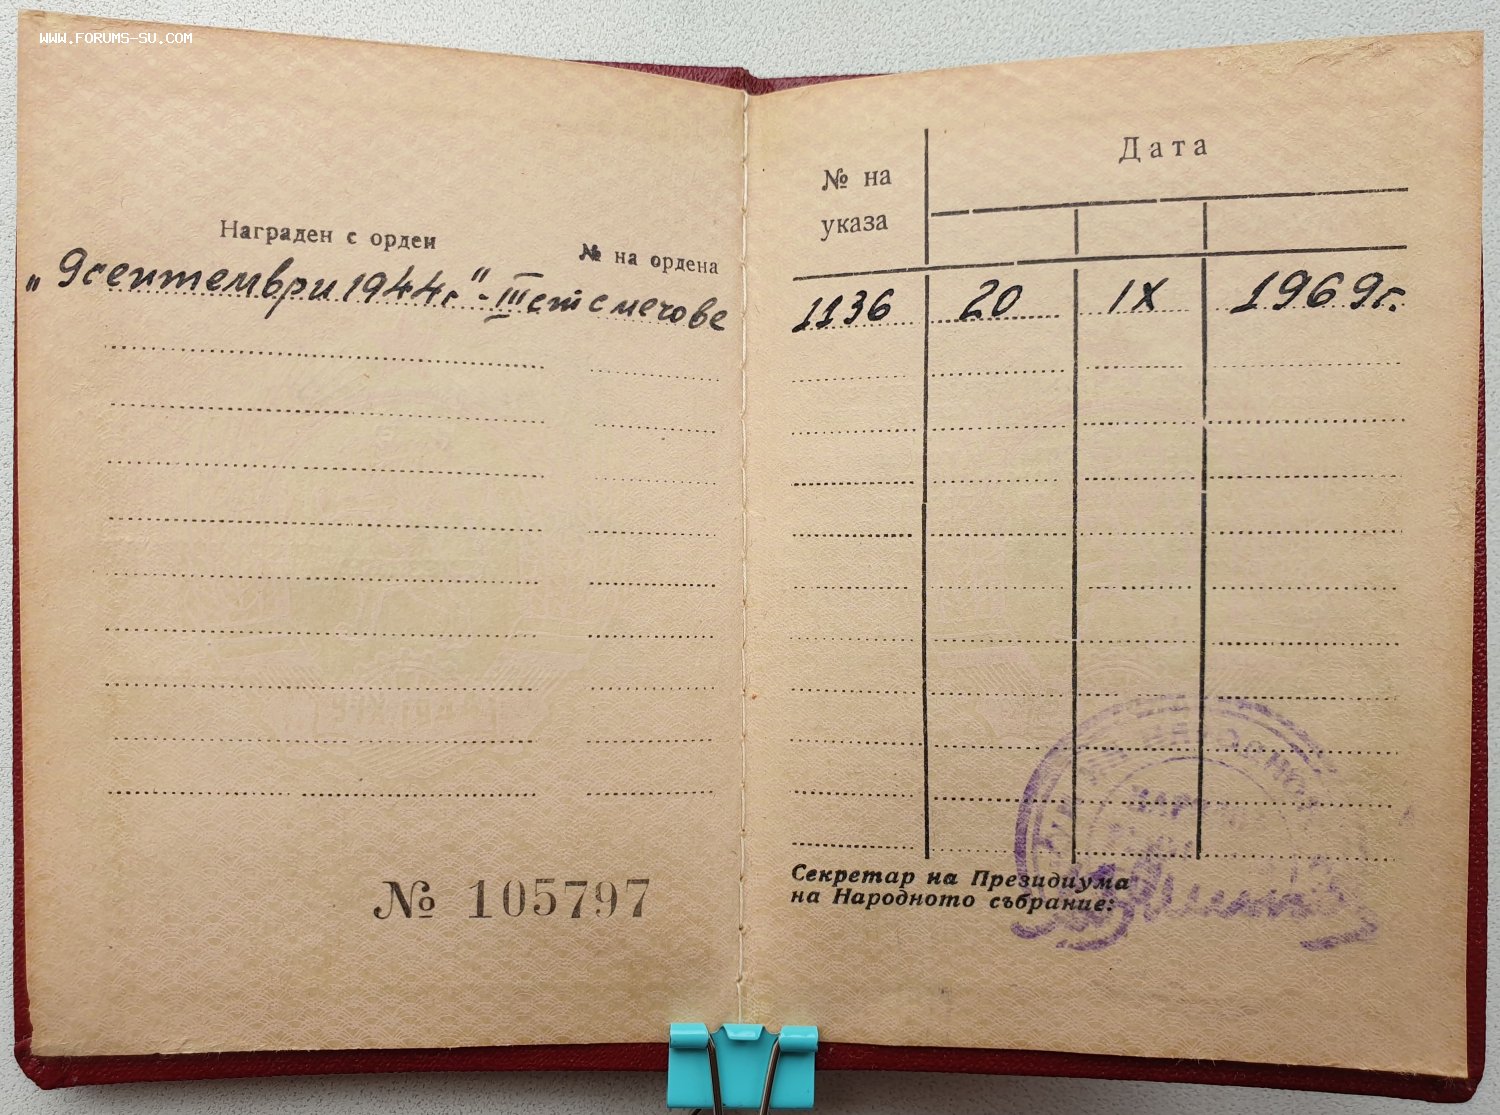 WWW.FORUMS-SU.COM
Награден с орден
№ на ордена
„9 септември 1944 г." - III ст с мечове
№ 105797
№ на указа
Дата
1136 20 IX 1969 г.
Секретар на Президиума
на Народното събрание: